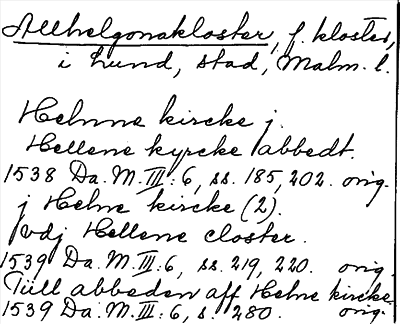 Allhelgonakloster, f. kloster,
i Lund, stad, Malm. l.
Helnne kircke j.
Hellene kyrcke abbedt.
1538 Da. M. III: 6, ss. 185, 202. orig.
j Helne kircke (2).
vdj Hellene closter.
1539 Da. M. III: 6, ss. 219, 220. orig.
Tiill abbeden aff Helne kircke.
1539 Da. M. III: 6, s. 280. orig.